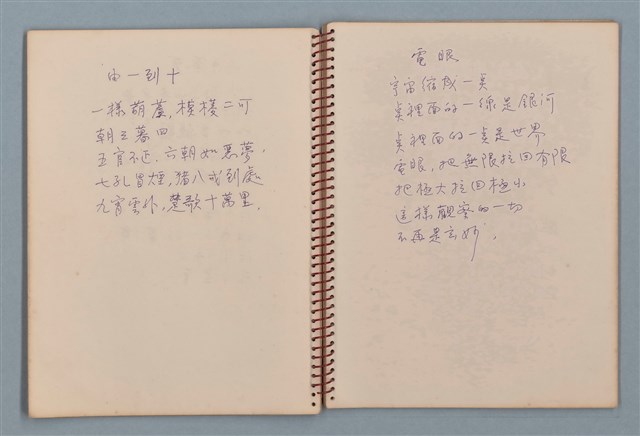 由一到十
一樣葫蘆,模稜二可
朝三暮四
五官不正,六朝如惡夢,
七孔冒煙,豬八戒到處
九霄雲外,楚歌十萬里,
電眼
宇宙縮成一點
點裡面的一線是銀河
點裡面的一點是世界
電眼,把無限拉回有限
把極大拉回極小
這樣觀察的一切
不再是玄妙,